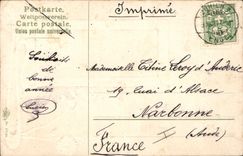 Imprimé
Postkarte.
Weltpostverein.
Carte postale.
Union postale universelle.
Souhaits
de
bonne
année
Mademoiselle Titine Leroy d'
19, Quai d'Alsace
Narbonne
(Aude)
France